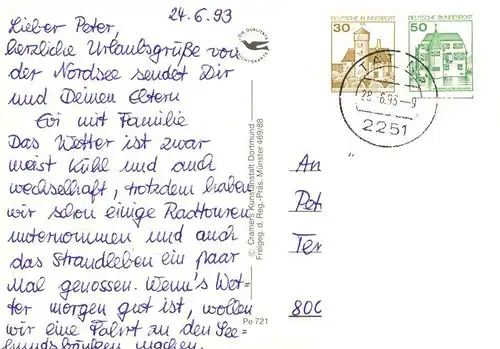 24.6.93
Lieber Peter,
herzliche Urlaubsgrüße von
der Nordsee sendet Dir
und Deinen Eltern
Evi mit Familie
Das Wetter ist zwar
meist kühl und auch
wechselhaft, trotzdem haben
wir schon einige Radtouren
unternommen und auch
das Strandleben ein paar
mal genossen. Wenn's Wet-
ter morgen gut ist, wollen
wir eine Fahrt zu den See-
hundsbänken machen.
DIE QUALITÄTS
© Cramers Kunstanstalt Dortmund
Freigeg. d. Reg.-Präs. Münster 469/88
Pe 721
30
DEUTSCHE BUNDESPOST
50
DEUTSCHE BUNDESPOST
28.-6.93-9
2251
An
Pet
Ter
800